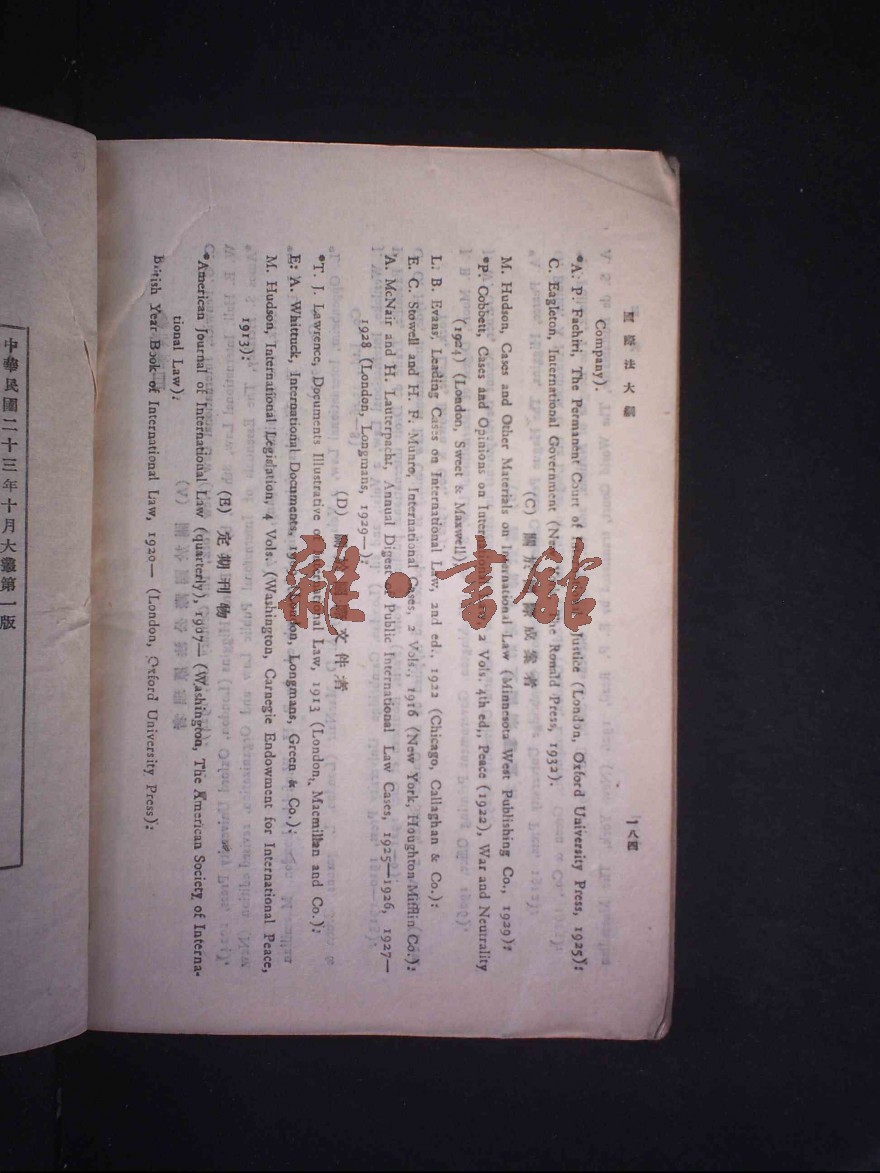 國際法大綱
一八四
Company).
*A. P. Fachiri, The Permanent Court of Justice (London, Oxford University Press, 1925);
C. Eagleton, International Government (New the Ronald Press, 1932).
(C) 關於 成案者
M. Hudson, Cases and Other Materials on International Law (Minnesota West Publishing Co., 1929);
*P. Cobbett, Cases and Opinions on International 2 Vols. 4th ed., Peace (1922), War and Neutrality
(1924) (London, Sweet & Maxwell);
L. B. Evans, Leading Cases on International Law, 2nd ed., 1922 (Chicago, Callaghan & Co.);
E. C. Stowell and H. F. Munro, International Cases, 2 Vols., 1916 (New York, Houghton Mifflin Co.);
*A. McNair and H. Lauterpacht, Annual Digest of Public International Law Cases, 1925—1926, 1927—
1928 (London, Longmans, 1929—);
(D) 文件者
*T. J. Lawrence, Documents Illustrative of International Law, 1913 (London, Macmillan and Co.);
E. A. Whittuck, International Documents, London, Longmans, Green & Co.);
1913);
M. Hudson, International Legislation, 4 Vols. (Washington, Carnegie Endowment for International Peace,
(E) 定期刊物
*American Journal of International Law (quarterly), 1907— (Washington, The American Society of Interna-
tional Law);
British Year Book of International Law, 1920— (London, Oxford University Press);
中華民國二十三年十月大業第一版
書館